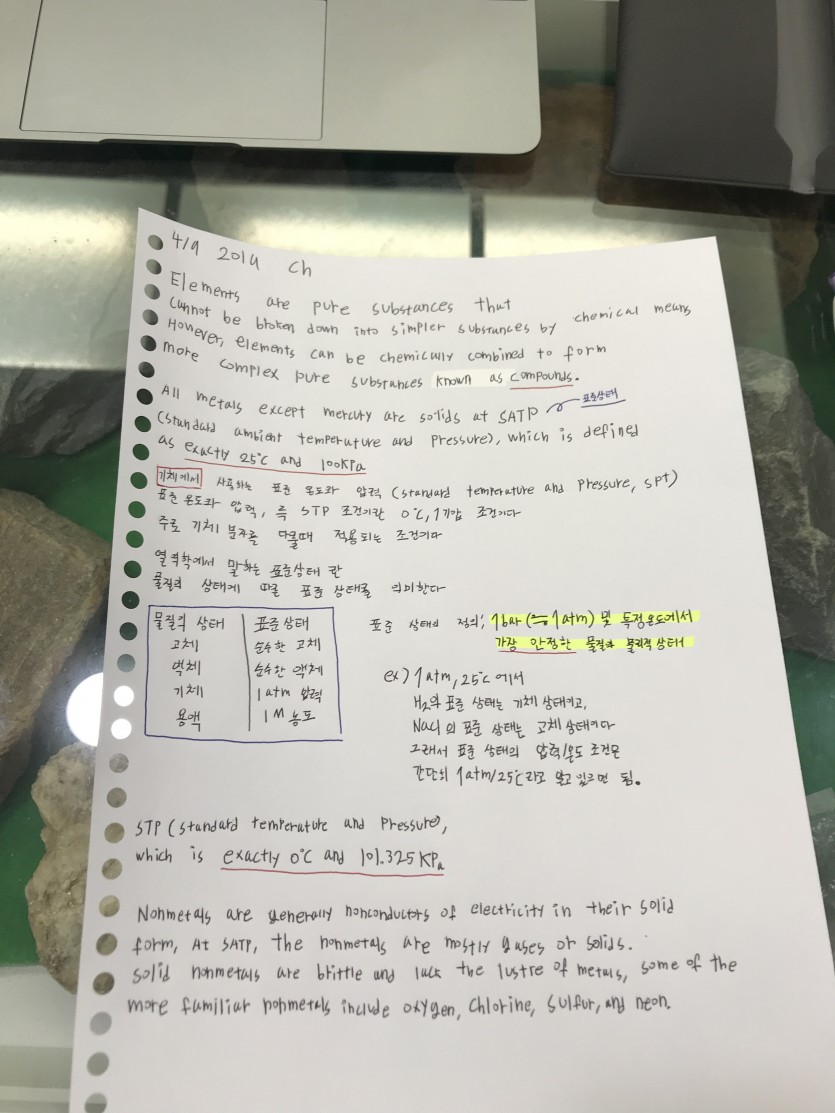 4/9 2019 Ch
Elements are pure substances that
cannot be broken down into simpler substances by chemical means
However, elements can be chemically combined to form
more complex pure substances known as compounds.
All metals except mercury are solids at SATP 표준상태
(standard ambient temperature and pressure), which is defined
as exactly 25°C and 100KPa
기체에서 사용하는 표준 온도와 압력 (standard temperature and pressure, SPT)
표준 온도와 압력, 즉 STP 조건이란 0°C, 1기압 조건이다
주로 기체 분자를 다룰때 적용되는 조건이다
열역학에서 말하는 표준상태 란
물질의 상태에 따른 표준 상태를 의미한다
물질의 상태 표준상태
고체 순수한 고체
액체 순수한 액체
기체 1atm 압력
용액 1M 농도
표준 상태의 정의; 1bar (≒1atm) 및 특정온도에서
가장 안정한 물질의 물리적 상태
ex) 1atm, 25°C 에서
H2의 표준 상태는 기체 상태이고,
NaCl의 표준 상태는 고체 상태이다
그래서 표준 상태의 압력/온도 조건은
간단히 1atm/25°C라고 알고 있으면 됨.
STP (standard temperature and pressure),
which is exactly 0°C and 101.325 KPa
Nonmetals are generally nonconductors of electricity in their solid
form, At SATP, the nonmetals are mostly gases or solids.
solid nonmetals are brittle and lack the lustre of metals, some of the
more familiar nonmetals include oxygen, chlorine, sulfur, and neon.